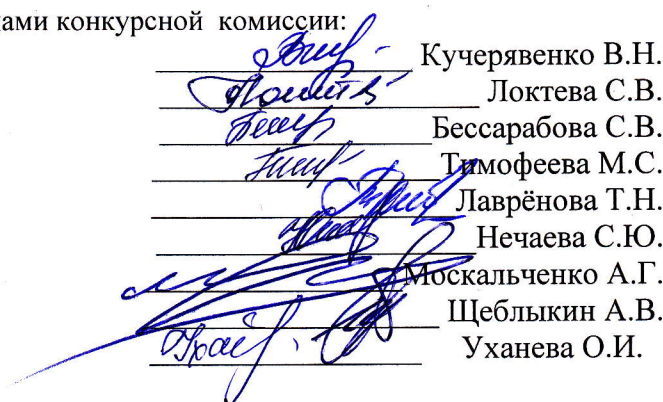 ами конкурсной комиссии:
Кучерявенко В.Н.
Локтева С.В.
Бессарабова С.В.
Тимофеева М.С.
Лаврёнова Т.Н.
Нечаева С.Ю.
Москальченко А.Г.
Щеблыкин А.В.
Уханева О.И.